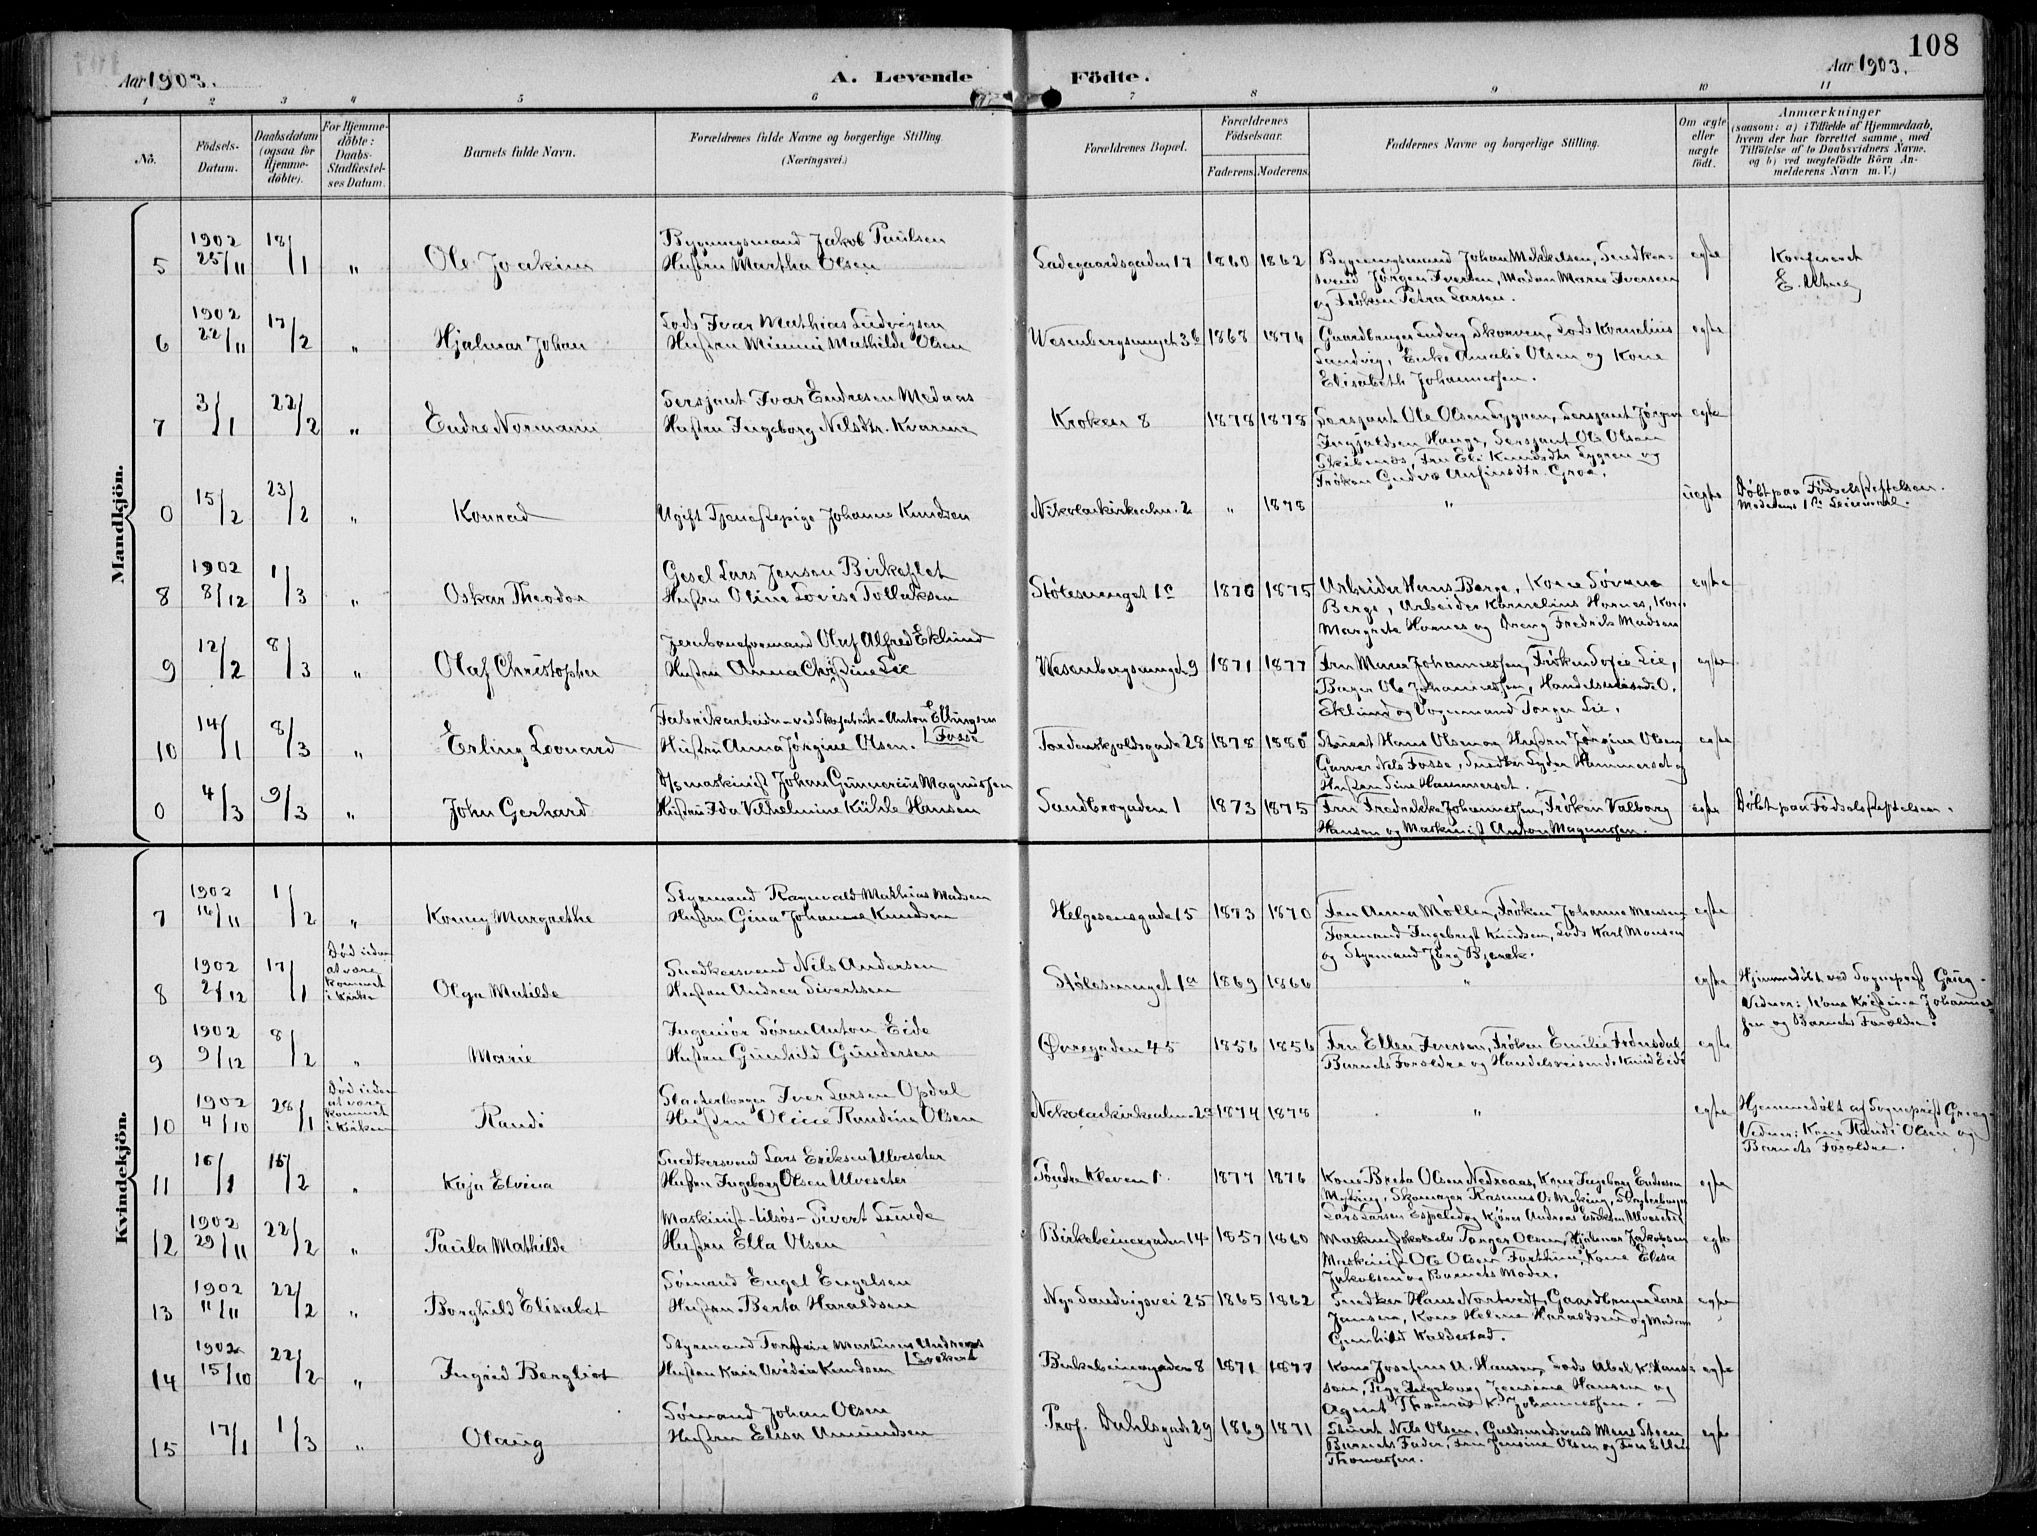 108
Aar 1903.
A. Levende Födte.
Aar 1903.
1 2 3 4 5 6 7 8 9 10 11
No.
Födsels-
Datum.
Daabsdatum
(ogsaa for
Hjemme-
döbte).
For Hjemme-
döbte:
Daabs-
Stadfæstel-
ses Datum.
Barnets fulde Navn.
Forældrenes fulde Navne og borgerlige Stilling.
(Næringsvei.)
Forældrenes Bopæl.
Forældrenes
Födselsaar.
Faderens. Moderens.
Faddernes Navne og borgerlige Stilling.
Om ægte
eller
uægte
födt.
Anmærkninger
(saasom: a) i Tilfælde af Hjemmedaab,
hvem der har forrettet samme, med
Tilföielse af to Daabsvidners Navne.
og b) ved uægtefödte Börn An-
melderens Navn m. V.)
Mandkjön.
5 1902 25/11 18/1 " Ole Joakim
Bygningsmand Jakob Paulsen
Hustru Martha Olsen
Ladegaardsgaden 17 1860 1862
Bygningsmand Johan Mikkelsen, Snedker-
svend Jørgen Iversen, Madam Marie Iversen
og Frøken Petra Larsen.
egte
Konfereret
6 1902 22/11 17/2 " Hjalmar Johan
Lods Ivar Mathias Ludvigsen
Hustru Minni Mathilde Olsen
Wesenbergsmuget 3b 1868 1876
Gaardbruger Ludvig Skorven, Lods Kornelius
Sandvig, Enke Amalie Olsen og Kone
Elisabeth Johannessen.
egte
7 3/1 22/2 " Endre Normann
Sersjant Ivar Endresen Medaas
Hustru Ingeborg Nilsdtr. Kvarme
Kroken 8 1878 1878
Sersjant Ole Olsen Lygren, Sersjant Jørgen
Ingjaldsen Hauge, Sersjant Ole Olsen
Skibenes, Fru Eli Knudsdtr Lygren og
Frøken Gudve Anfinsdtr. Groe.
egte
0 15/2 23/2 " Konrad
Ugift Tjenestepige Johanne Knudsen
Nikolaikirkealm. 2 " 1878 "
uegte
Døbt paa Fødselsstiftelsen.
Moderens 1ste Leiermaal.
8 1902 8/12 1/3 " Oskar Theodor
Gesel Lars Jensen Birkeflet
Hustru Oline Lovise Tollaksen
Stølesmuget 1c 1870 1875
Arbeider Hans Berge, Kone Sørine
Berge, Arbeider Kornelius Hornes, Kone
Margrete Hornes og Dreng Fredrik Madsen
egte
9 12/2 8/3 " Olaf Christopher
Jernbaneformand Olaf Alfred Eklund
Hustru Anna Christine Lie
Wesenbergsmuget 9 1871 1877
Fru Maren Johannessen, Frøken Sofie Lie,
Bager Ole Johannessen, Handelsreisende O.
Eklund og Vognmand Torger Lie.
egte
10 14/1 8/3 " Erling Leonard
Fabrikarbeider ved Skofabrik Anton Ellingsen
Hustru Anna Jørgine Olsen. [Fosse
Tordenskjoldsgade 28 1878 1880
Stuert Hans Olsen og Hustru Jørgine Olsen,
Garver Nils Fosse, Snedker Lyder Hammerset og
Hustru Sine Hammerset.
egte
0 4/3 9/3 " John Gerhard
D/S maskinist Johan Gunnerius Magnussen
Hustru Ida Vilhelmine Kühle Hansen
Sandbrogaden 1 1873 1875
Fru Fredrikke Johannessen, Frøken Valborg
Hansen og Maskinist Anton Magnussen.
egte
Døbt paa Fødselsstiftelsen.
Kvindekjön.
7 1902 16/11 1/2 " Konny Margrethe
Styrmand Ragnvald Mathias Madsen
Hustru Gina Johanne Knudsen
Helgesensgade 15 1873 1870
Fru Anna Møller, Frøken Johanne Monsen
Formand Ingebrigt Knudsen, Lods Karl Monsen
og Styrmand Jørg Bjerck.
egte
8 1902 2/12 17/1
Død uden
at være
kommet
i Kirke
Olga Matilde
Snedkersvend Nils Andersen
Hustru Andrea Sivertsen
Stølesmuget 1a 1869 1866 "
egte
Hjemmedøbt ved Sogneprest Grieg.
Vidner: Kone Kristina Johannes-
sen og Barnets Forældre.
9 1902 9/12 8/2 " Marie
Ingeniør Søren Anton Eide
Hustru Gunhild Gundersen
Øvregaden 45 1856 1856
Fru Ellen Iversen, Frøken Emilie Frønsdal
Barnets Forældre og Handelsreisende Knud Eide
egte
10 1902 4/10 28/1
Død uden
at være
kommet
i Kirken
Randi
Slagterborger Iver Larsen Opdal
Hustru Oline Randine Olsen
Nikolaikirkealm. 2a 1874 1878 "
egte
Hjemmedøbt af Sogneprest Grieg
Vidner: Kone Randi Olsen og
Barnets Forældre.
11 16/1 15/2 " Kaja Elvina
Snedkersvend Lars Eriksen Ulveseter
Hustru Ingeborg Olsen Ulveseter
Søndre Kleven 1. 1877 1876
Kone Breta Olsen Nedreaas, Kone Ingeborg Endresen
Myking, Skomager Rasmus O. Myking, Slagterborger
Lars Larsen Espeland og Kjører Andreas Eriksen Ulveseter
egte
12 1902 29/11 22/2 " Paula Mathilde
Maskinist-tilsøs-Sivert Lunde
Hustru Ella Olsen
Birkebeinergaden 14 1857 1860
Torger Olsen, Hjalmar Jakobsen
Maskinist Ole Olsen Fortthun, Kone Elisa
Jakobsen og Barnets Moder.
egte
13 1902 11/11 22/2 " Borghild Elisabet
Sømand Engel Engelsen
Hustru Berta Haraldsen
Nye Sandvigsvei 25 1865 1862
Snedker Hans Nortvedt, Gaardbruger Lars
Jansen, Kone Helene Haraldsen og Madam
Gunhild Kaldestad.
egte
14 1902 15/10 22/2 " Ingrid Bergliot
Styrmand Torstein Martinus Andreas
Hustru Kaia Ovidia Knudsen
Birkebeinergaden 8 1871 1877
Kone Josefine A. Hansen, Lods Abel K. Hans-
sen, Pige Ingeborg Jensine Hansen og
Agent Thomas K. Johannessen.
egte
15 17/1 1/3 " Olaug
Sømand Johan Olsen
Hustru Elisa Amundsen
Prof. Dahlsgade 29 1869 1871
Stuert Nils Olsen, Guldsmedsvend Mons Steen
Barnets Fader, Fru Jensine Olsen og Fru Ellen
Thomassen.
egte